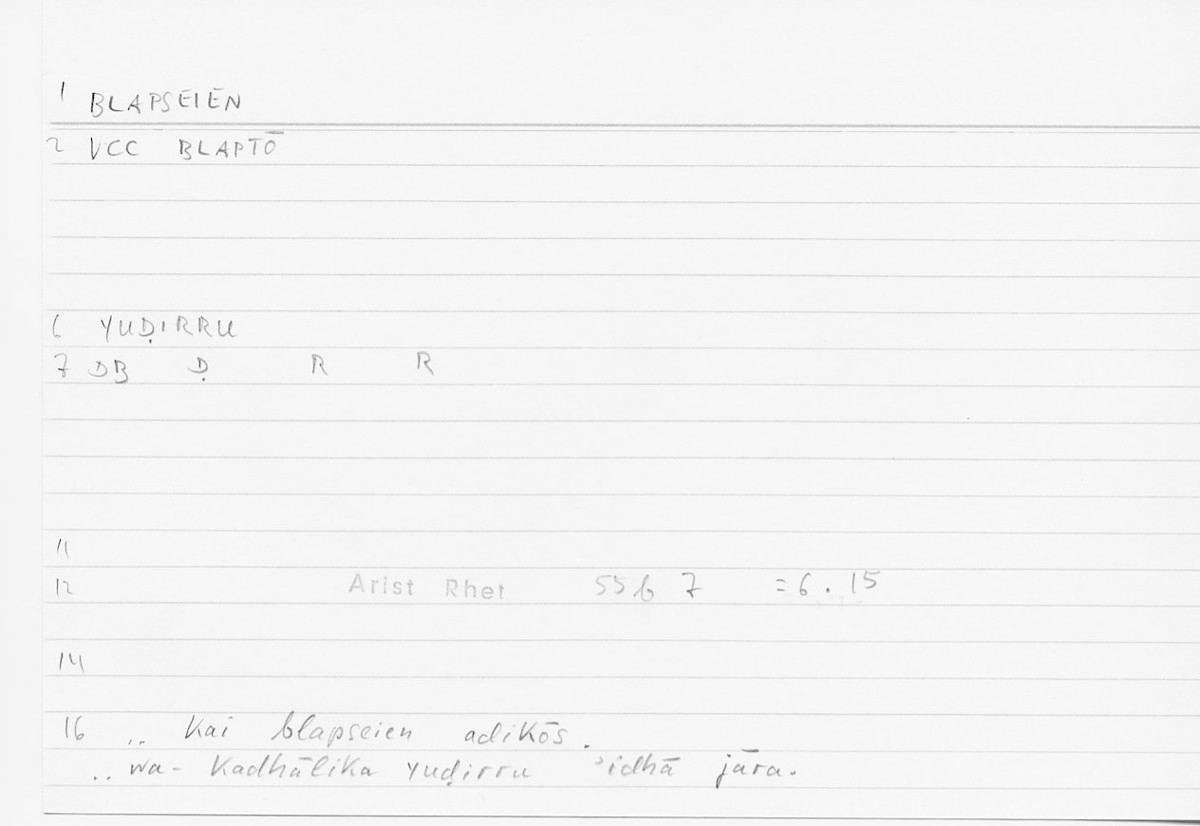 1 BLAPSEIEN
2 VCC BLAPTŌ
6 YUḌIRRU
7 DB Ḍ R R
11
12 Arist Rhet 55b 7 =6.15
14
16 .. kai blapseien adikōs.
.. wa- kadhālika yuḍirru ʾidhā jāra.